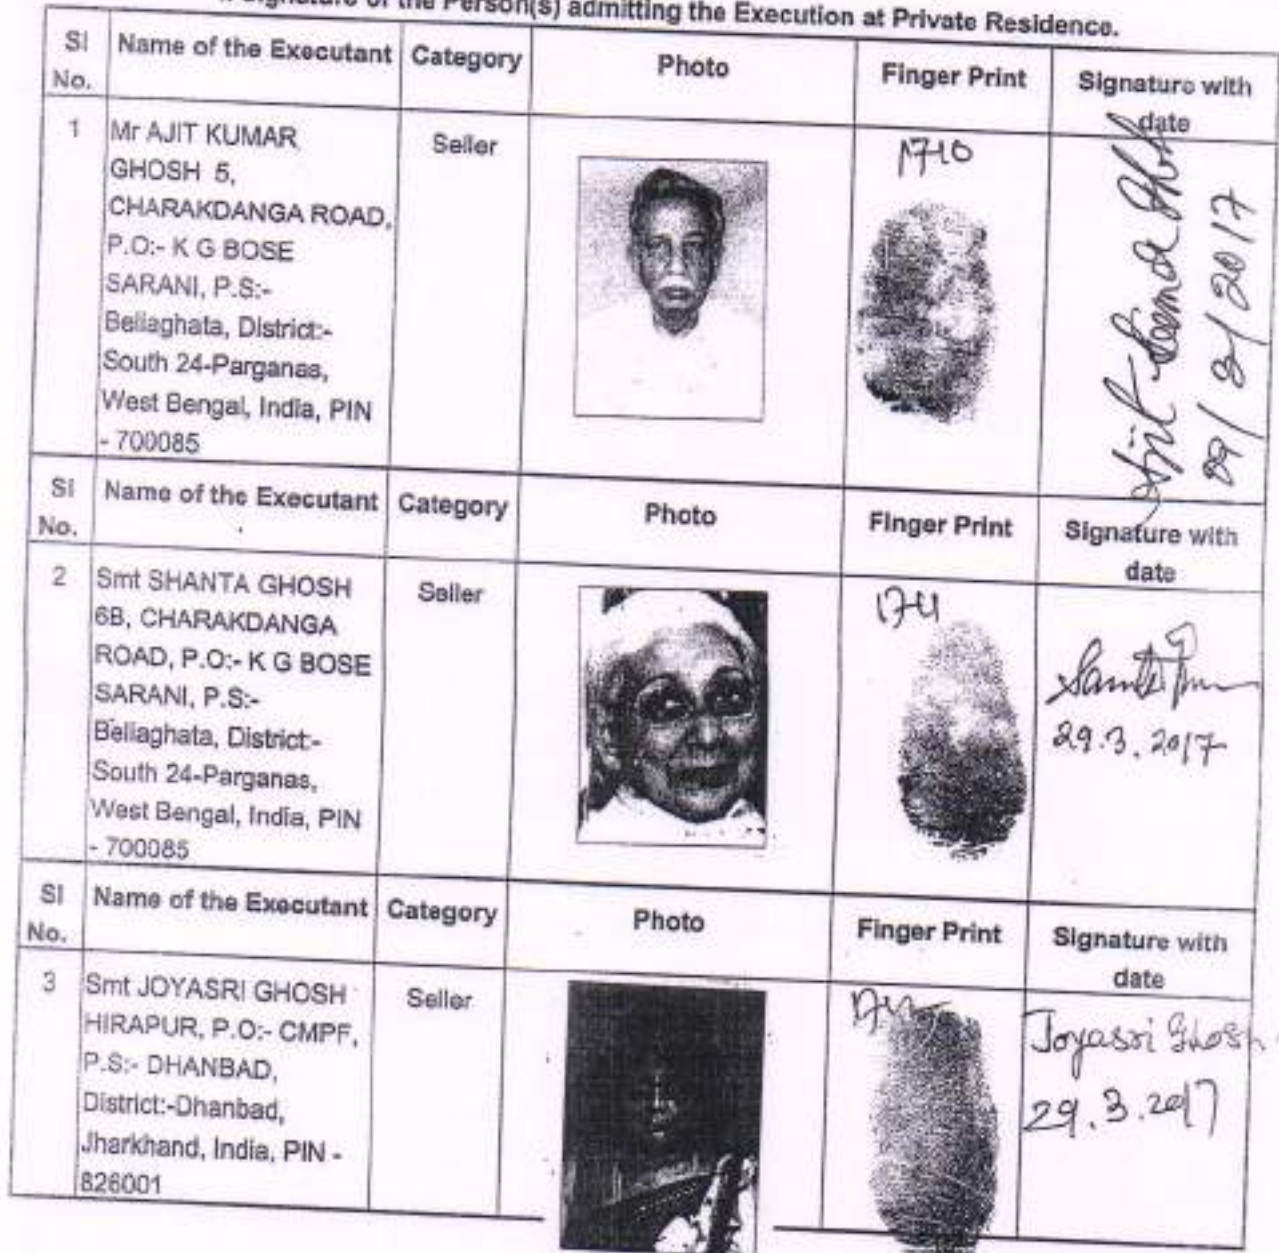 Signature of the Person(s) admitting the Execution at Private Residence.
Sl No. Name of the Executant Category Photo Finger Print Signature with date
1 Mr AJIT KUMAR Seller 1710
GHOSH 5,
CHARAKDANGA ROAD,
P.O:- K G BOSE
SARANI, P.S:-
Bellaghata, District:-
South 24-Parganas,
West Bengal, India, PIN
- 700085
Ajit Ghosh
2017
Sl No. Name of the Executant Category Photo Finger Print Signature with date
2 Smt SHANTA GHOSH Seller 1711
6B, CHARAKDANGA
ROAD, P.O:- K G BOSE
SARANI, P.S:-
Bellaghata, District:-
South 24-Parganas,
West Bengal, India, PIN
- 700085
29.3.2017
Sl No. Name of the Executant Category Photo Finger Print Signature with date
3 Smt JOYASRI GHOSH Seller
HIRAPUR, P.O:- CMPF,
P.S:- DHANBAD,
District:-Dhanbad,
Jharkhand, India, PIN -
826001
Joyasri Ghosh
29.3.2017